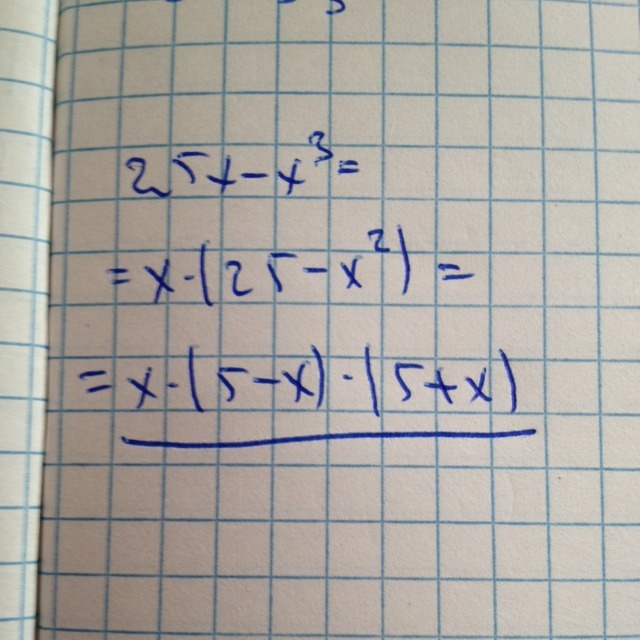 25x-x³=
=x·(25-x²)=
=x·(5-x)·(5+x)